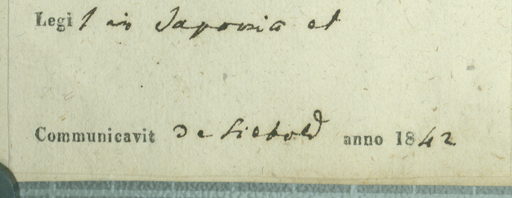 Legit in Japonia et
Communicavit de Siebold anno 1842